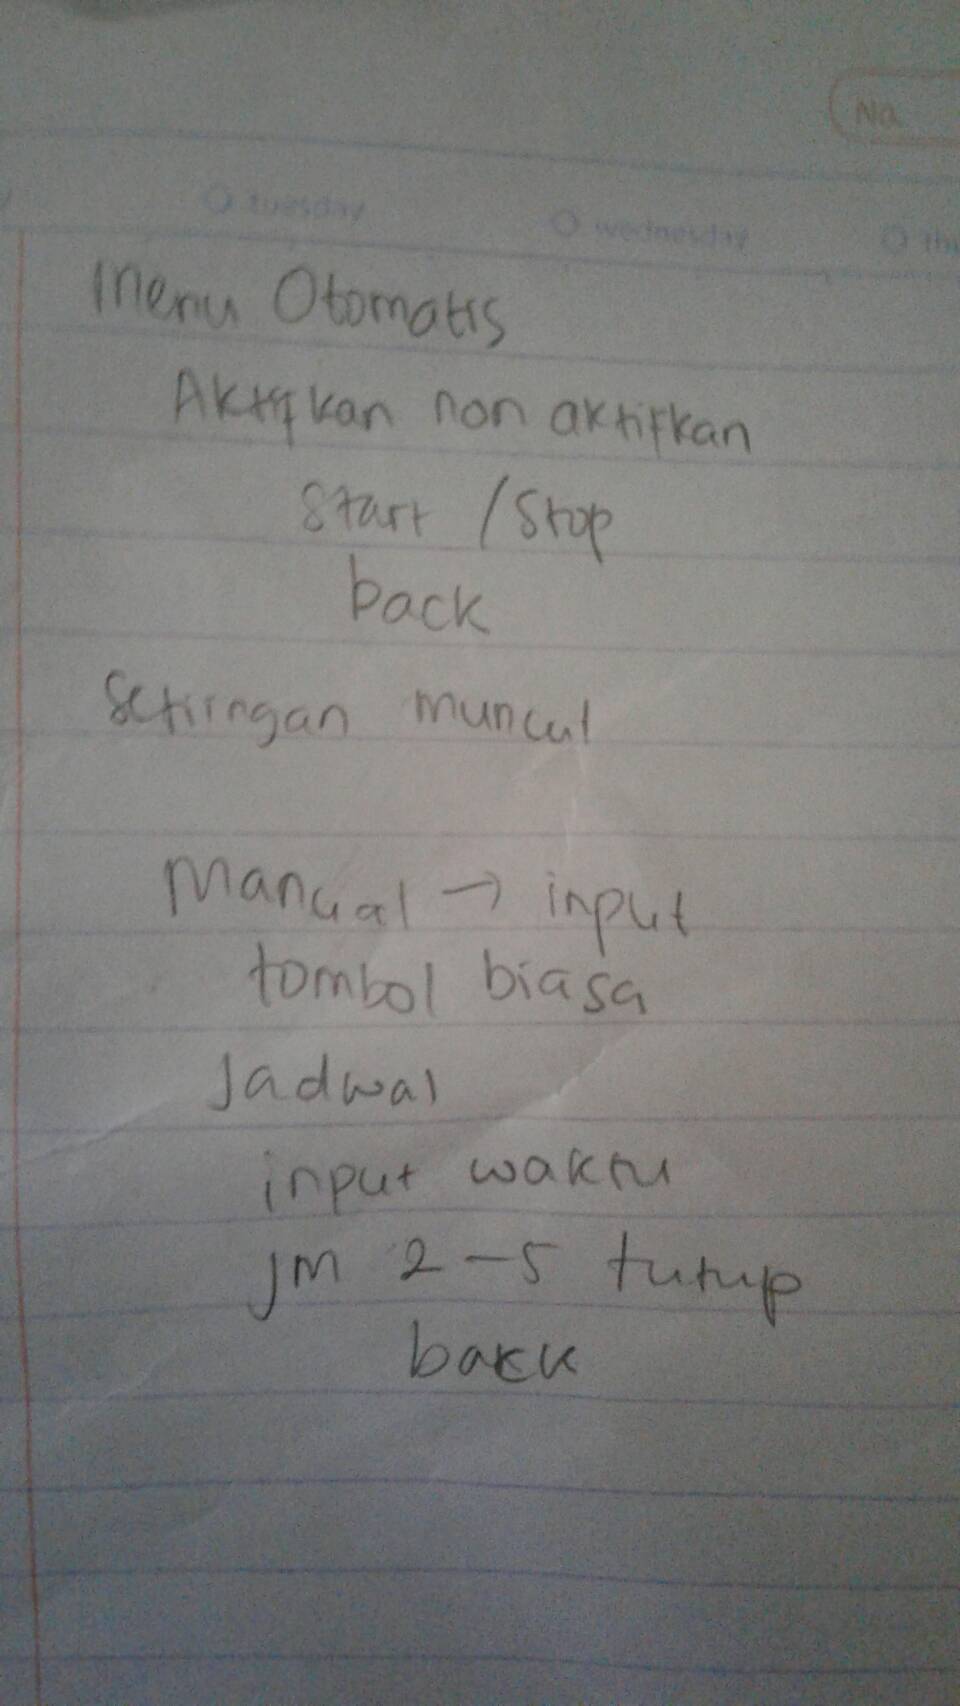 No
tuesday wednesday thu
Menu Otomatis
Aktifkan non aktifkan
Start / Stop
back
Setiingan muncul
Manual → input
tombol biasa
Jadwal
input waktu
jm 2-5 tutup
back